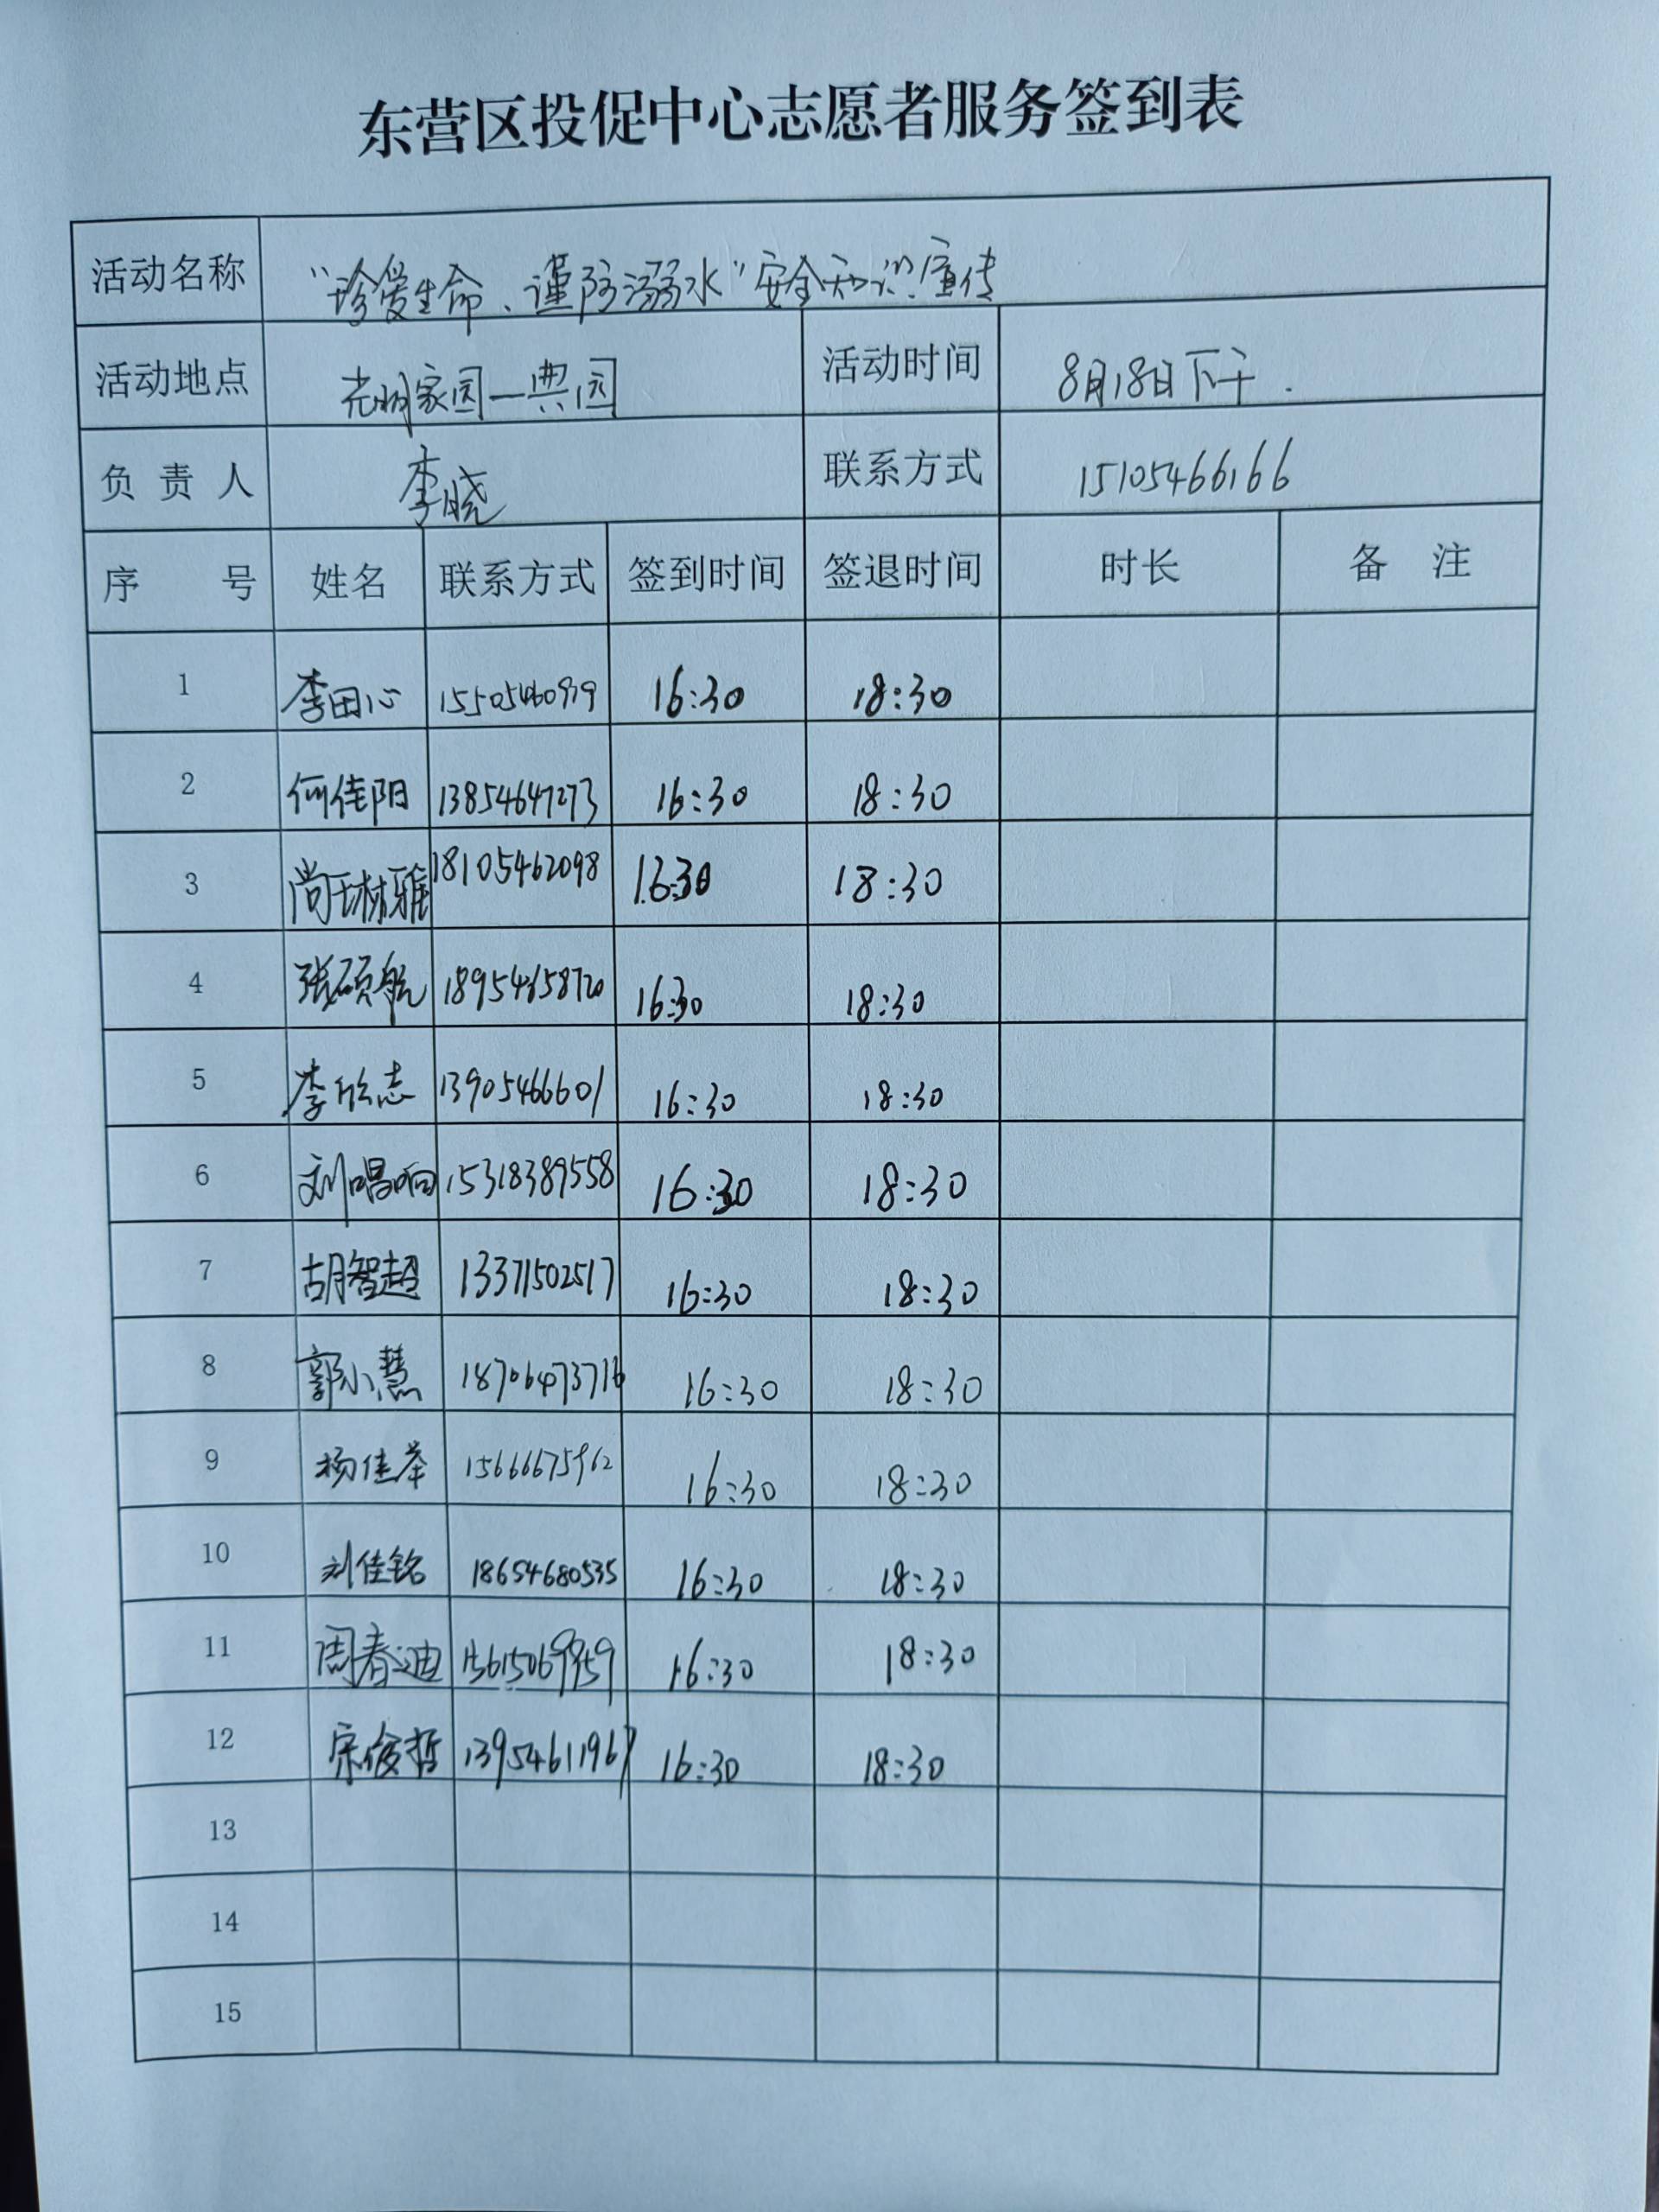 东营区投促中心志愿者服务签到表
活动名称 “珍爱生命、谨防溺水”安全知识宣传
活动地点 光明家园一典园 活动时间 8月18日下午.
负责人 李晓 联系方式 15105466166
序号 姓名 联系方式 签到时间 签退时间 时长 备注
1 李田心 16:30 18:30
2 何佳阳 13854647273 16:30 18:30
3 尚琳雅 18105462098 16:30 18:30
4 张硕航 18954658720 16:30 18:30
5 李欣志 13905466601 16:30 18:30
6 刘唱响 15318389558 16:30 18:30
7 胡智超 13371502517 16:30 18:30
8 郭小慧 18706473716 16:30 18:30
9 杨佳举 15666675962 16:30 18:30
10 刘佳铭 18654680535 16:30 18:30
11 周春迪 16:30 18:30
12 宋俊哲 13954611967 16:30 18:30
13
14
15